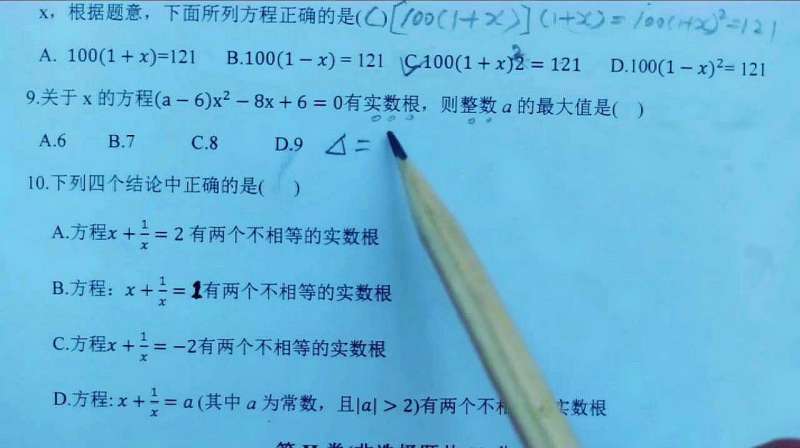 x，根据题意，下面所列方程正确的是(C)[100(1+x)](1+x)=100(1+x)²=121
A. 100(1 + x)=121 B.100(1 − x) = 121 C.100(1 + x)2 = 121 D.100(1 − x)²= 121
9.关于 x 的方程(a − 6)x² − 8x + 6 = 0有实数根，则整数 a 的最大值是( )
A.6 B.7 C.8 D.9 Δ=
10.下列四个结论中正确的是( )
A.方程x + 1/x = 2 有两个不相等的实数根
B.方程：x + 1/x = 1有两个不相等的实数根
C.方程x + 1/x = −2有两个不相等的实数根
D.方程: x + 1/x = a (其中 a 为常数，且|a| > 2)有两个不相 实数根